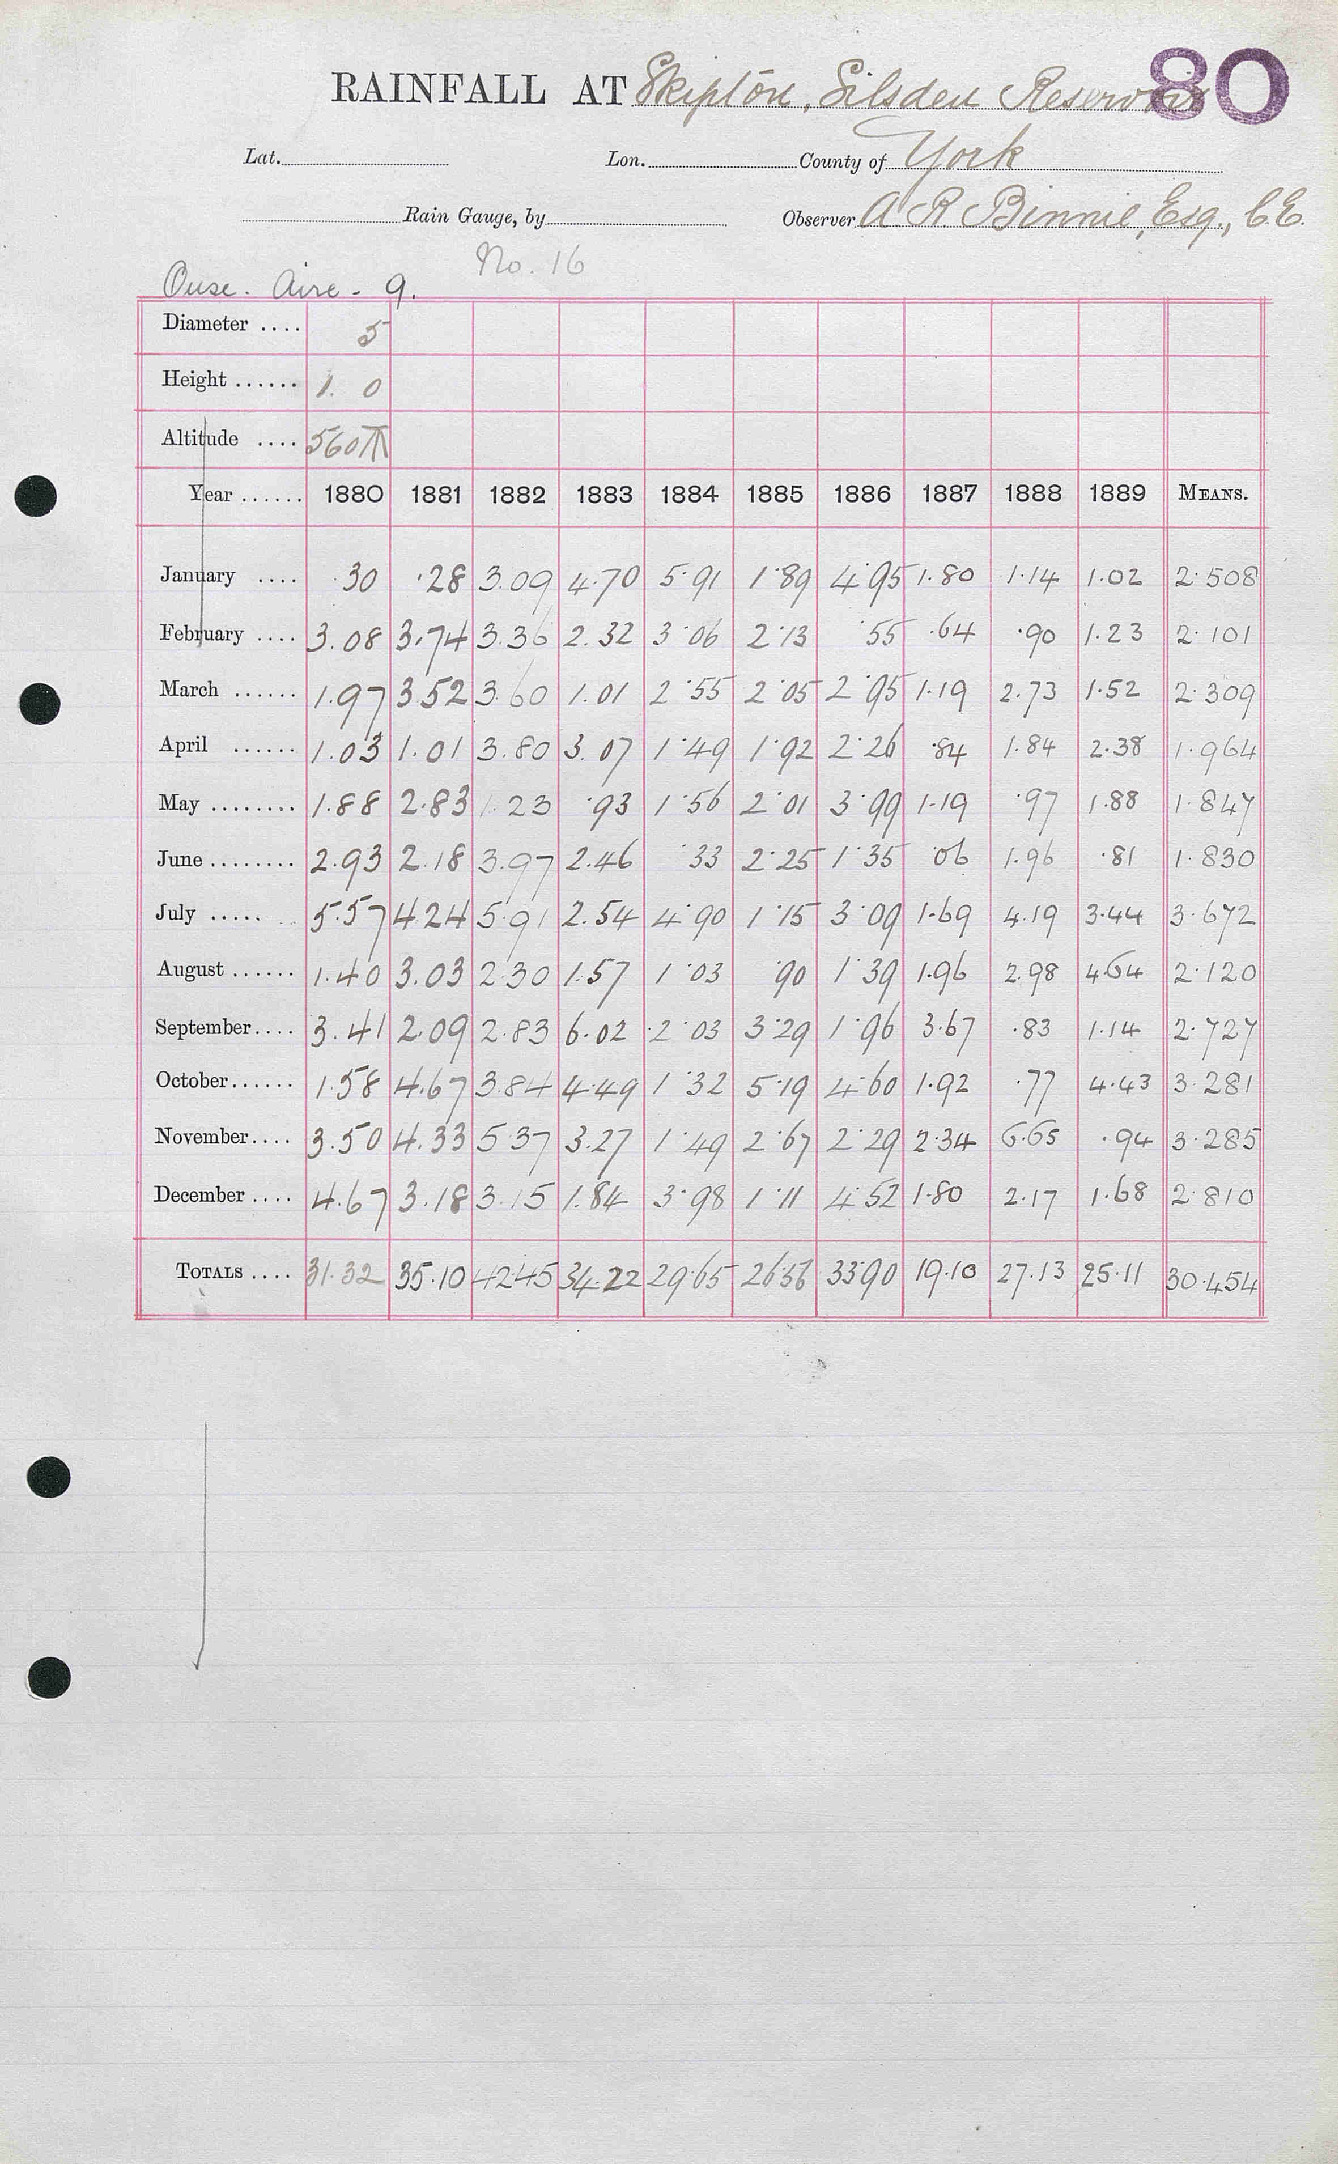 80
RAINFALL AT Skipton, Silsden Reservoir
Lat. Lon. County of York
Rain Gauge, by Observer A R Binnie, Esq., C.E.
No. 16
Ouse. Aire - 9.
Diameter .... 5
Height ...... 1. 0
Altitude .... 560 T
Year ...... 1880 1881 1882 1883 1884 1885 1886 1887 1888 1889 MEANS.
January .... .30 .28 3.09 4.70 5.91 1.89 4.95 1.80 1.14 1.02 2.508
February .... 3.08 3.74 3.36 2.32 3.06 2.13 .55 .64 .90 1.23 2.101
March ...... 1.97 3.52 3.60 1.01 2.55 2.05 2.95 1.19 2.73 1.52 2.309
April ...... 1.03 1.01 3.80 3.07 1.49 1.92 2.26 .84 1.84 2.38 1.964
May ........ 1.88 2.83 1.23 .93 1.56 2.01 3.99 1.19 .97 1.88 1.847
June ........ 2.93 2.18 3.97 2.46 .33 2.25 1.35 .06 1.96 .81 1.830
July ..... 5.57 4.24 5.91 2.54 4.90 1.15 3.09 1.69 4.19 3.44 3.672
August ...... 1.40 3.03 2.30 1.57 1.03 .90 1.39 1.96 2.98 4.64 2.120
September.... 3.41 2.09 2.83 6.02 2.03 3.29 1.96 3.67 .83 1.14 2.727
October...... 1.58 4.67 3.84 4.49 1.32 5.19 4.60 1.92 .77 4.43 3.281
November.... 3.50 4.33 5.37 3.27 1.49 2.67 2.29 2.34 6.65 .94 3.285
December .... 4.67 3.18 3.15 1.84 3.98 1.11 4.52 1.80 2.17 1.68 2.810
TOTALS .... 31.32 35.10 42.45 34.22 29.65 26.56 33.90 19.10 27.13 25.11 30.454